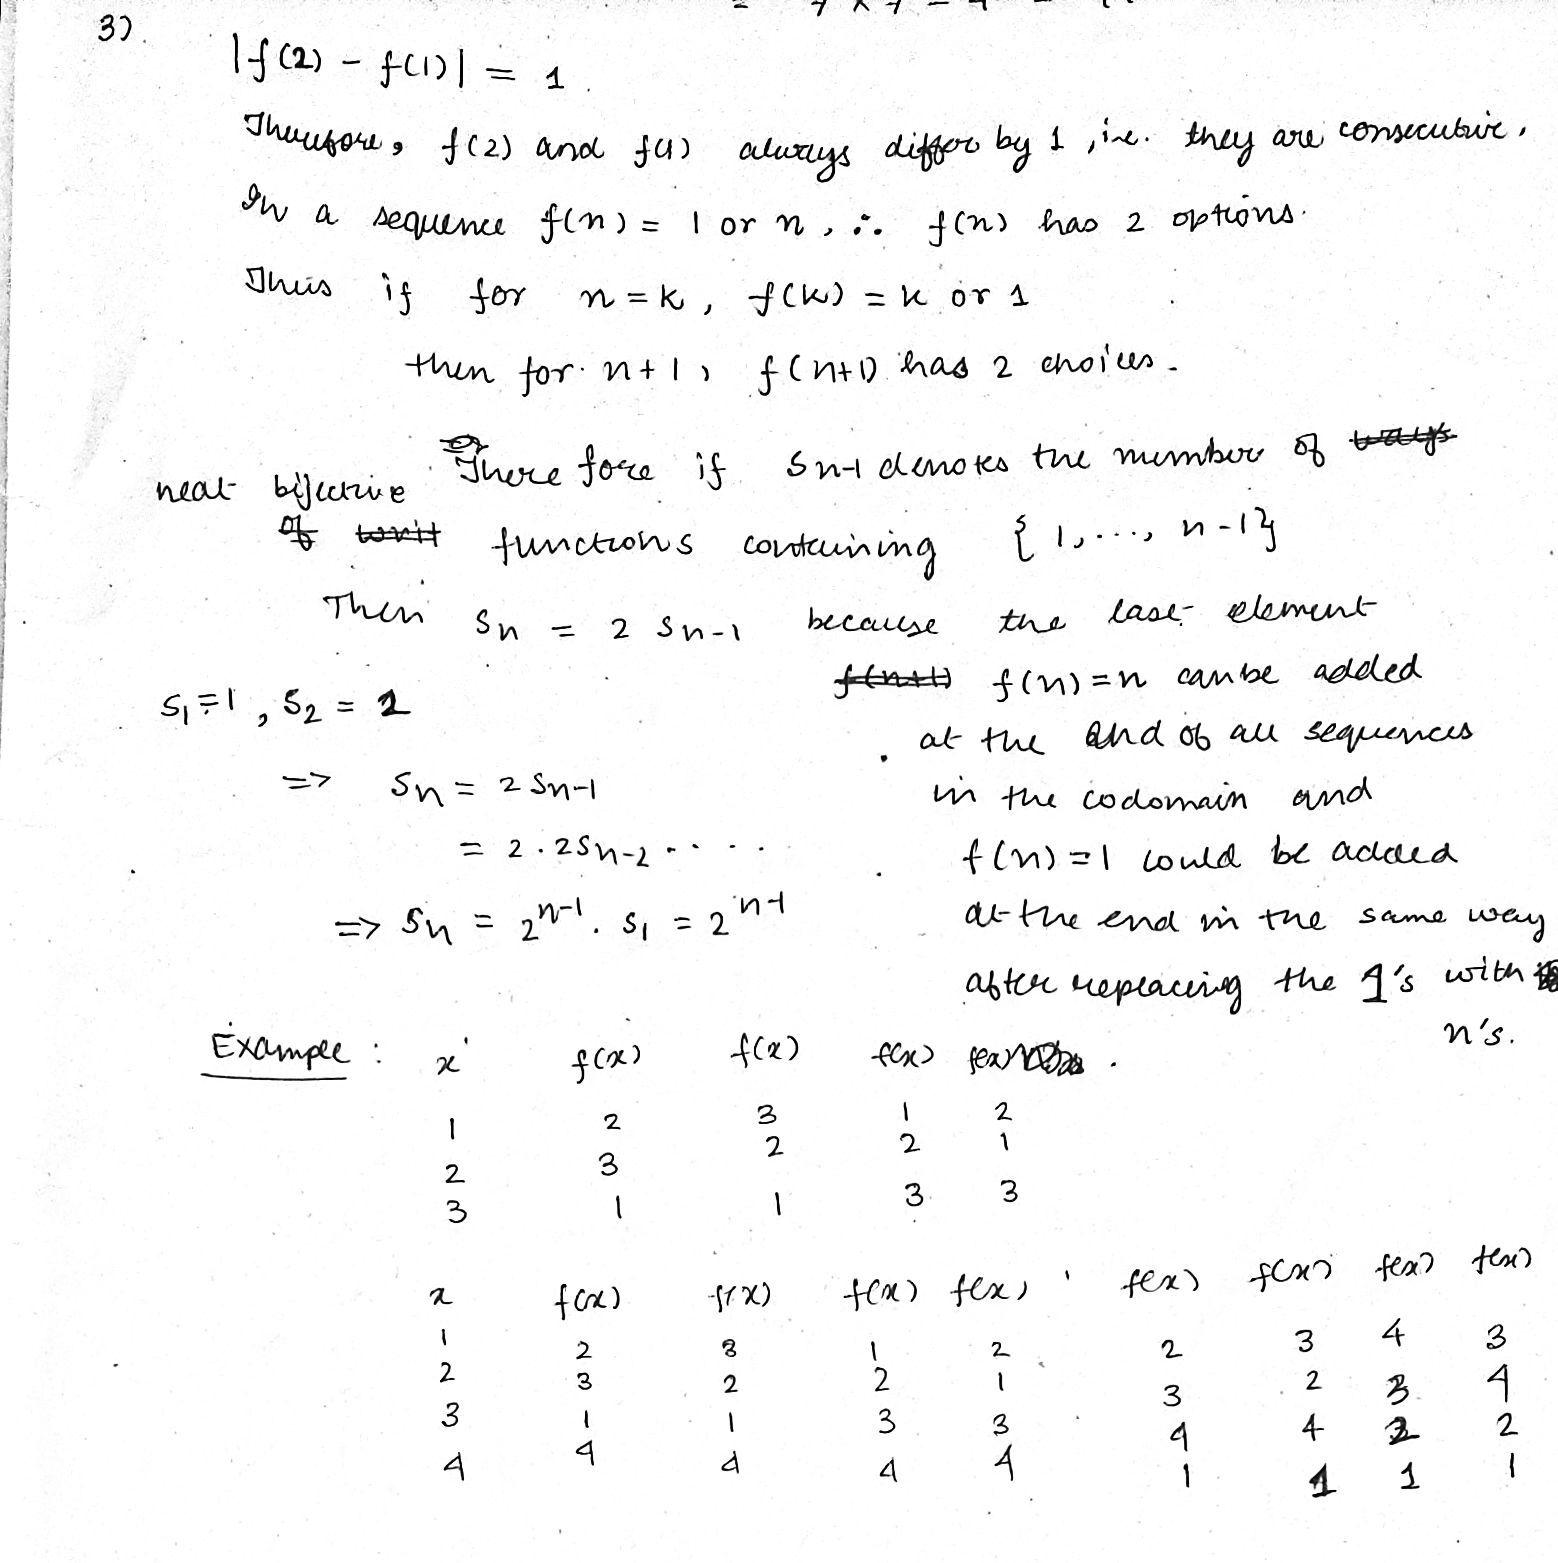 3).
|f(2) - f(1)| = 1.
Therefore, f(2) and f(1) always differ by 1, i.e. they are consecutive.
In a sequence f(n) = 1 or n, ∴ f(n) has 2 options.
Thus if for n = k, f(k) = k or 1
then for n+1, f(n+1) has 2 choices.
Therefore if Sn-1 denotes the number of ways
neat bijective
of functions containing {1,..., n-1}
Then Sn = 2 Sn-1 because the last element
f(n+1) f(n) = n can be added
S1 = 1, S2 = 2
at the end of all sequences
=> Sn = 2 Sn-1
in the codomain and
= 2.2Sn-2 .....
f(n) = 1 could be added
=> Sn = 2^n-1 . S1 = 2^n-1
at the end in the same way
after replacing the 1's with
n's.
Example : x f(x) f(x) f(x) f(x)
1 2 3 1 2
2 3 2 2 1
3 1 1 3 3
x f(x) f(x) f(x) f(x) f(x) f(x) f(x) f(x)
1 2 3 1 2 2 3 4 3
2 3 2 2 1 3 2 3 4
3 1 1 3 3 4 4 2 2
4 4 4 4 4 1 1 1 1